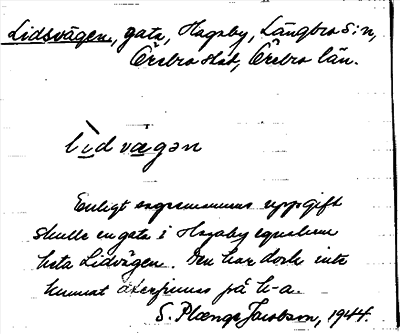 Lidsvägen, gata, Hagaby, Längbro s:n,
Örebro stad, Örebro län.
lìdvægən
Enligt sagesmannens uppgift
skulle en gata i Hagaby egnahem
heta Lidvägen. Den har dock inte
kunnat återfinnas på k-a.
S. Plænge Jacobson, 1944.